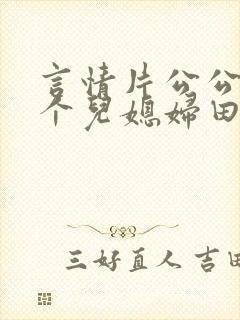 言情片公公
个兒媳婦田
三好直人 吉田